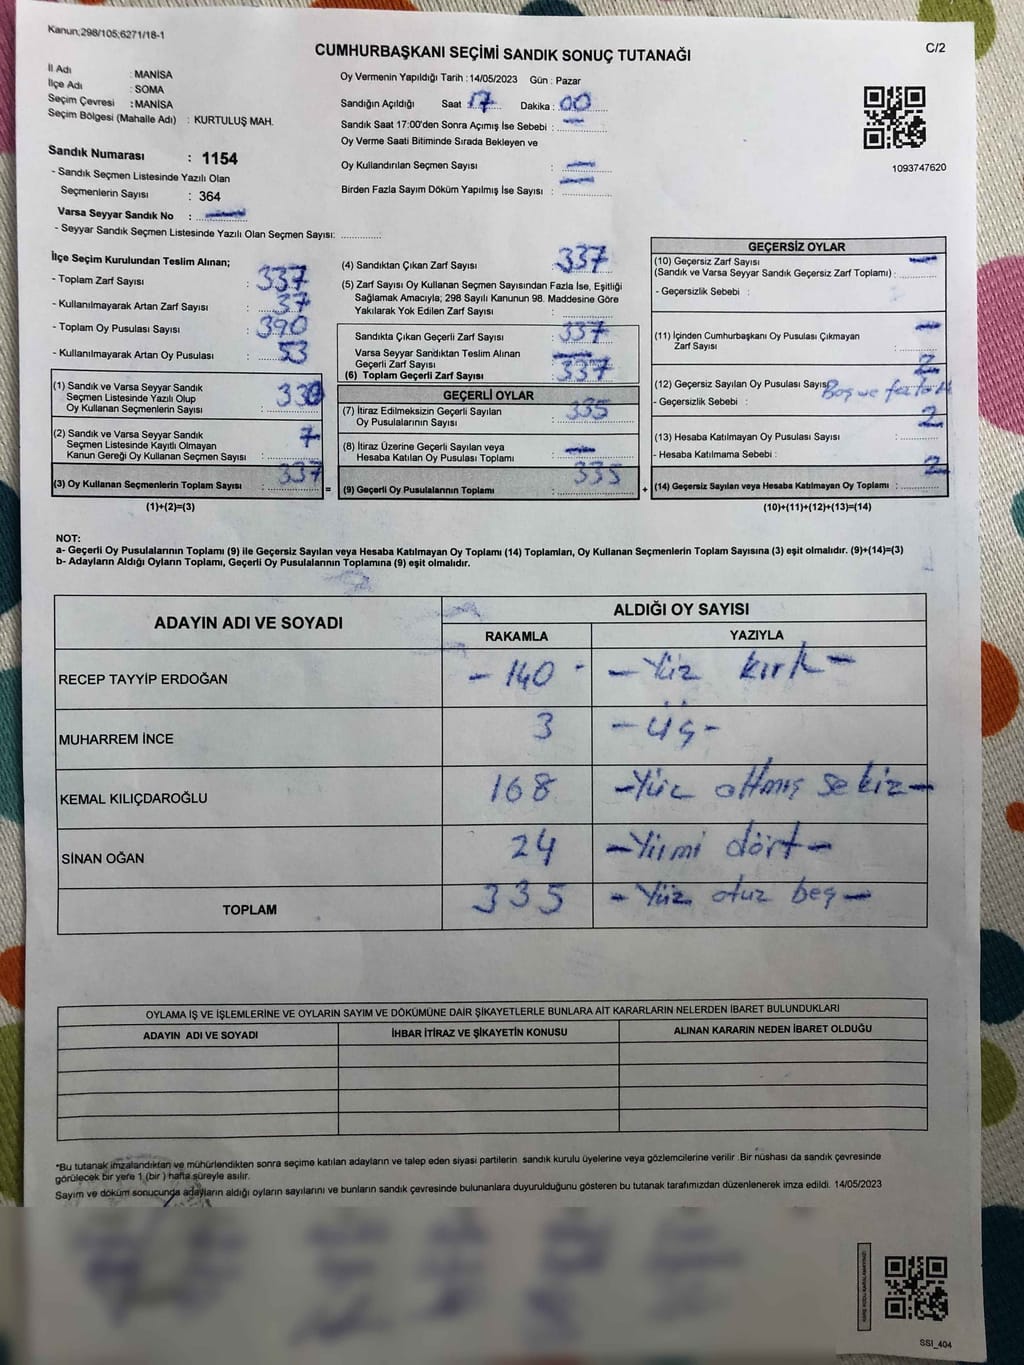 Kanun;298/105;6271/18-1
C/2
CUMHURBAŞKANI SEÇİMİ SANDIK SONUÇ TUTANAĞI
İl Adı : MANİSA
İlçe Adı : SOMA
Seçim Çevresi : MANİSA
Seçim Bölgesi (Mahalle Adı) : KURTULUŞ MAH.
Sandık Numarası : 1154
- Sandık Seçmen Listesinde Yazılı Olan
Seçmenlerin Sayısı : 364
Varsa Seyyar Sandık No :
- Seyyar Sandık Seçmen Listesinde Yazılı Olan Seçmen Sayısı:
Oy Vermenin Yapıldığı Tarih : 14/05/2023 Gün : Pazar
Sandığın Açıldığı Saat 17 Dakika : 00
Sandık Saat 17:00'den Sonra Açımış İse Sebebi :
Oy Verme Saati Bitiminde Sırada Bekleyen ve
Oy Kullandırılan Seçmen Sayısı :
Birden Fazla Sayım Döküm Yapılmış İse Sayısı :
1093747620
İlçe Seçim Kurulundan Teslim Alınan;
- Toplam Zarf Sayısı : 337
- Kullanılmayarak Artan Zarf Sayısı : 37
- Toplam Oy Pusulası Sayısı : 390
- Kullanılmayarak Artan Oy Pusulası : 53
(1) Sandık ve Varsa Seyyar Sandık
Seçmen Listesinde Yazılı Olup
Oy Kullanan Seçmenlerin Sayısı : 330
(2) Sandık ve Varsa Seyyar Sandık
Seçmen Listesinde Kayıtlı Olmayan
Kanun Gereği Oy Kullanan Seçmen Sayısı : 7
(3) Oy Kullanan Seçmenlerin Toplam Sayısı : 337
(1)+(2)=(3)
(4) Sandıktan Çıkan Zarf Sayısı : 337
(5) Zarf Sayısı Oy Kullanan Seçmen Sayısından Fazla İse, Eşitliği
Sağlamak Amacıyla; 298 Sayılı Kanunun 98. Maddesine Göre
Yakılarak Yok Edilen Zarf Sayısı :
Sandıkta Çıkan Geçerli Zarf Sayısı : 337
Varsa Seyyar Sandıktan Teslim Alınan
Geçerli Zarf Sayısı :
(6) Toplam Geçerli Zarf Sayısı : 337
GEÇERLİ OYLAR
(7) İtiraz Edilmeksizin Geçerli Sayılan
Oy Pusulalarının Sayısı : 335
(8) İtiraz Üzerine Geçerli Sayılan veya
Hesaba Katılan Oy Pusulası Toplamı :
= (9) Geçerli Oy Pusulalarının Toplamı : 335
GEÇERSİZ OYLAR
(10) Geçersiz Zarf Sayısı
(Sandık ve Varsa Seyyar Sandık Geçersiz Zarf Toplamı) :
- Geçersizlik Sebebi :
(11) İçinden Cumhurbaşkanı Oy Pusulası Çıkmayan
Zarf Sayısı :
(12) Geçersiz Sayılan Oy Pusulası Sayısı 2
- Geçersizlik Sebebi : Boş ve fazla
(13) Hesaba Katılmayan Oy Pusulası Sayısı : 2
- Hesaba Katılmama Sebebi :
+ (14) Geçersiz Sayılan veya Hesaba Katılmayan Oy Toplamı : 2
(10)+(11)+(12)+(13)=(14)
NOT:
a- Geçerli Oy Pusulalarının Toplamı (9) ile Geçersiz Sayılan veya Hesaba Katılmayan Oy Toplamı (14) Toplamları, Oy Kullanan Seçmenlerin Toplam Sayısına (3) eşit olmalıdır. (9)+(14)=(3)
b- Adayların Aldığı Oyların Toplamı, Geçerli Oy Pusulalarının Toplamına (9) eşit olmalıdır.
ADAYIN ADI VE SOYADI ALDIĞI OY SAYISI
RAKAMLA YAZIYLA
RECEP TAYYİP ERDOĞAN - 140 - - Yüz kırk -
MUHARREM İNCE 3 - üç -
KEMAL KILIÇDAROĞLU 168 - Yüz altmış sekiz -
SİNAN OĞAN 24 - Yirmi dört -
TOPLAM 335 - Yüz otuz beş -
OYLAMA İŞ VE İŞLEMLERİNE VE OYLARIN SAYIM VE DÖKÜMÜNE DAİR ŞİKAYETLERLE BUNLARA AİT KARARLARIN NELERDEN İBARET BULUNDUKLARI
ADAYIN ADI VE SOYADI İHBAR İTİRAZ VE ŞİKAYETİN KONUSU ALINAN KARARIN NEDEN İBARET OLDUĞU
*Bu tutanak imzalandıktan ve mühürlendikten sonra seçime katılan adayların ve talep eden siyasi partilerin sandık kurulu üyelerine veya gözlemcilerine verilir .Bir nüshası da sandık çevresinde
görülecek bir yere 1 (bir ) hafta süreyle asılır.
Sayım ve döküm sonucunda adayların aldığı oyların sayılarını ve bunların sandık çevresinde bulunanlara duyurulduğunu gösteren bu tutanak tarafımızdan düzenlenerek imza edildi. 14/05/2023
SSI_404